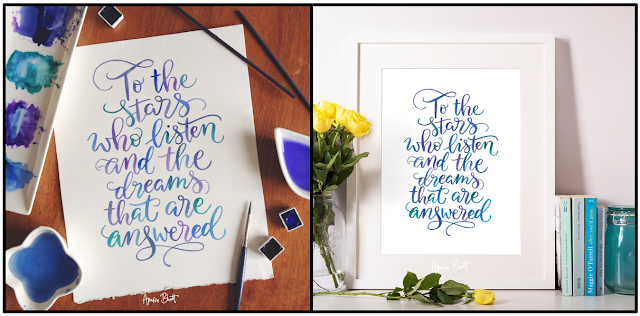 To the
stars
who listen
and the
dreams
that are
answered
To the
stars
who listen
and the
dreams
that are
answered
Maggie O'Farrell